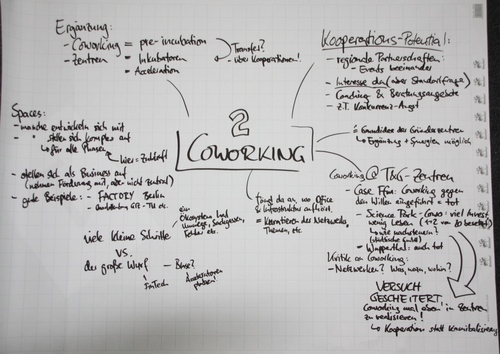 Ergänzung:
- Coworking = pre-incubation
- Zentren = Inkubatoren
= Acceleration
Transfer?
über Kooperationen!
Kooperations-Potential:
- regionale Partnerschaften
Events beieinander
- Interesse da (aber Standortfrage)
- Coaching & Beratungsangebote
- z.T. Konkurrenz-Angst
Spaces:
- manche entwickeln sich mit
- " stellen sich komplex auf
für alle Phasen
hier = Zukunft
- stellen sich als Business auf
(nehmen Förderung mit, aber nicht zentral)
- gute Beispiele: - FACTORY Berlin
2
COWORKING
= Grundidee der Gründerzentren
↳ Ergänzung + Synergien möglich
Coworking @ T&G-Zentren
- Case Ffm: Coworking gegen
den Willen eingeführt = tot
- Science Park - Cowo: viel Invest,
wenig Leben (1+2 von 20 besetzt)
↳ wie wachsen?
- Wuppertal: auch tot
Kritik an Coworking:
- Netzwerken? Was, wem, wohin?
VERSUCH
GESCHEITERT,
Coworking mal eben in Zentren
zu realisieren!
↳ Kooperation statt Kannibalisierung
fängt da an, wo Office
& Infrastruktur aufhört
= Kernthemen des Netzwerks,
Themen, etc.
viele kleine Schritte
ein
Ökosystem hat
Umwege, Sackgassen,
Fehler etc.
vs.
der große Wurf
- FinTech
- Börse?